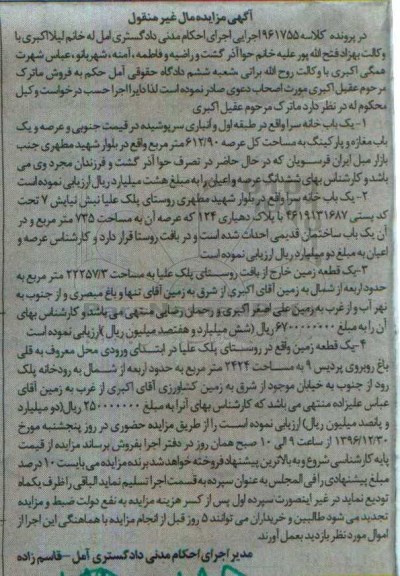 آگهی مزایده مال غیر منقول
در پرونده کلاسه ۹۶۱۷۵۵ اجرایی اجرای احکام مدنی دادگستری امل له خانم لیلا اکبری با
وکالت بهزاد فتح الله پور علیه خانم حوا آذر گشت و راضیه و فاطمه، آمنه، شهربانو، عباس شهرت
همگی اکبری با وکالت روح الله براتی شعبه ششم دادگاه حقوقی آمل حکم به فروش ماترک
مرحوم عقیل اکبری مورث اصحاب دعوی صادر نموده است لذا دایرا اجرا حسب درخواست وکیل
محکوم له در نظر دارد ماترک مرحوم عقیل اکبری
۱- یک باب خانه سرا واقع در طبقه اول و انباری سرپوشیده در قیمت جنوبی و عرصه و یک
باب مغازه و پارکینگ به مساحت کل عرصه ۶۱۲/۹۰ متر مربع واقع در بلوار شهید مطهری جنب
بازار مبل ایران فرسویان که در حال حاضر در تصرف حوا آذر گشت و فرزندان مجرد وی می
باشد و کارشناس بهای ششدانگ عرصه و اعیان را به مبلغ هشت میلیارد ریال ارزیابی نموده است
۲- یک باب خانه سرا واقع در بلوار شهید مطهری روستای پلک علیا نبش نیایش ۷ تحت
کد پستی ۴۶۱۹۱۳۱۶۸۷ با پلاک دهیاری ۱۲۴ که عرصه آن به مساحت ۷۳۵ متر مربع و در
آن یک باب ساختمان قدیمی احداث شده است و در بافت روستا قرار دارد و کارشناس عرصه و
اعیان به مبلغ دو میلیارد ریال ارزیابی نموده است
۳- یک قطعه زمین خارج از بافت روستای پلک علیا به مساحت ۲۲۲۵۷/۳ متر مربع به
حدود اربعه از شمال به زمین آقای اکبری از شرق به زمین آقای تنها و باغ مبصری و از جنوب به
نهر آب و از غرب به زمین علی اصغر اکبری و رحمان رضایی منتهی می باشد و کارشناس بهای
آن را به مبلغ ۶۷۰۰۰۰۰۰۰۰ ریال (شش میلیارد و هفتصد میلیون ریال) ارزیابی نموده است
۴- یک قطعه زمین واقع در روستای پلک علیا در ابتدای ورودی محل معروف به قلی
باغ روبروی پردیس ۹ به مساحت ۲۴۲۴ متر مربع به حدود اربعه از شمال به رودخانه پلک
رود از جنوب به خیابان موجود از شرق به زمین کشاورزی آقای اکبری از غرب به زمین آقای
عباس علیزاده منتهی می باشد که کارشناس بهای آنرا به مبلغ ۲۵۰۰۰۰۰۰۰۰ ریال(دو میلیارد
و پانصد میلیون ریال) ارزیابی نموده است را از طریق مزایده حضوری در روز پنجشنبه مورخ
۱۳۹۶/۱۲/۳۰ از ساعت ۹ الی ۱۰ صبح همان روز در دفتر اجرا بفروش برساند مزایده از قیمت
پایه کارشناسی شروع و به بالاترین پیشنهاد فروخته خواهد شد برنده مزایده می بایست ۱۰ درصد
مبلغ پیشنهادی را فی المجلس به عنوان سپرده به قسمت اجرا تسلیم نماید الباقی را ظرف یکماه
تودیع نماید در غیر اینصورت سپرده اول پس از کسر هزینه مزایده به نفع دولت ضبط و مزایده
تجدید می شود طالبین و خریداران می توانند ۵ روز قبل از انجام مزایده با هماهنگی این اجرا از
اموال مورد نظر بازدید بعمل آورند.
مدیر اجرای احکام مدنی دادگستری آمل - قاسم زاده